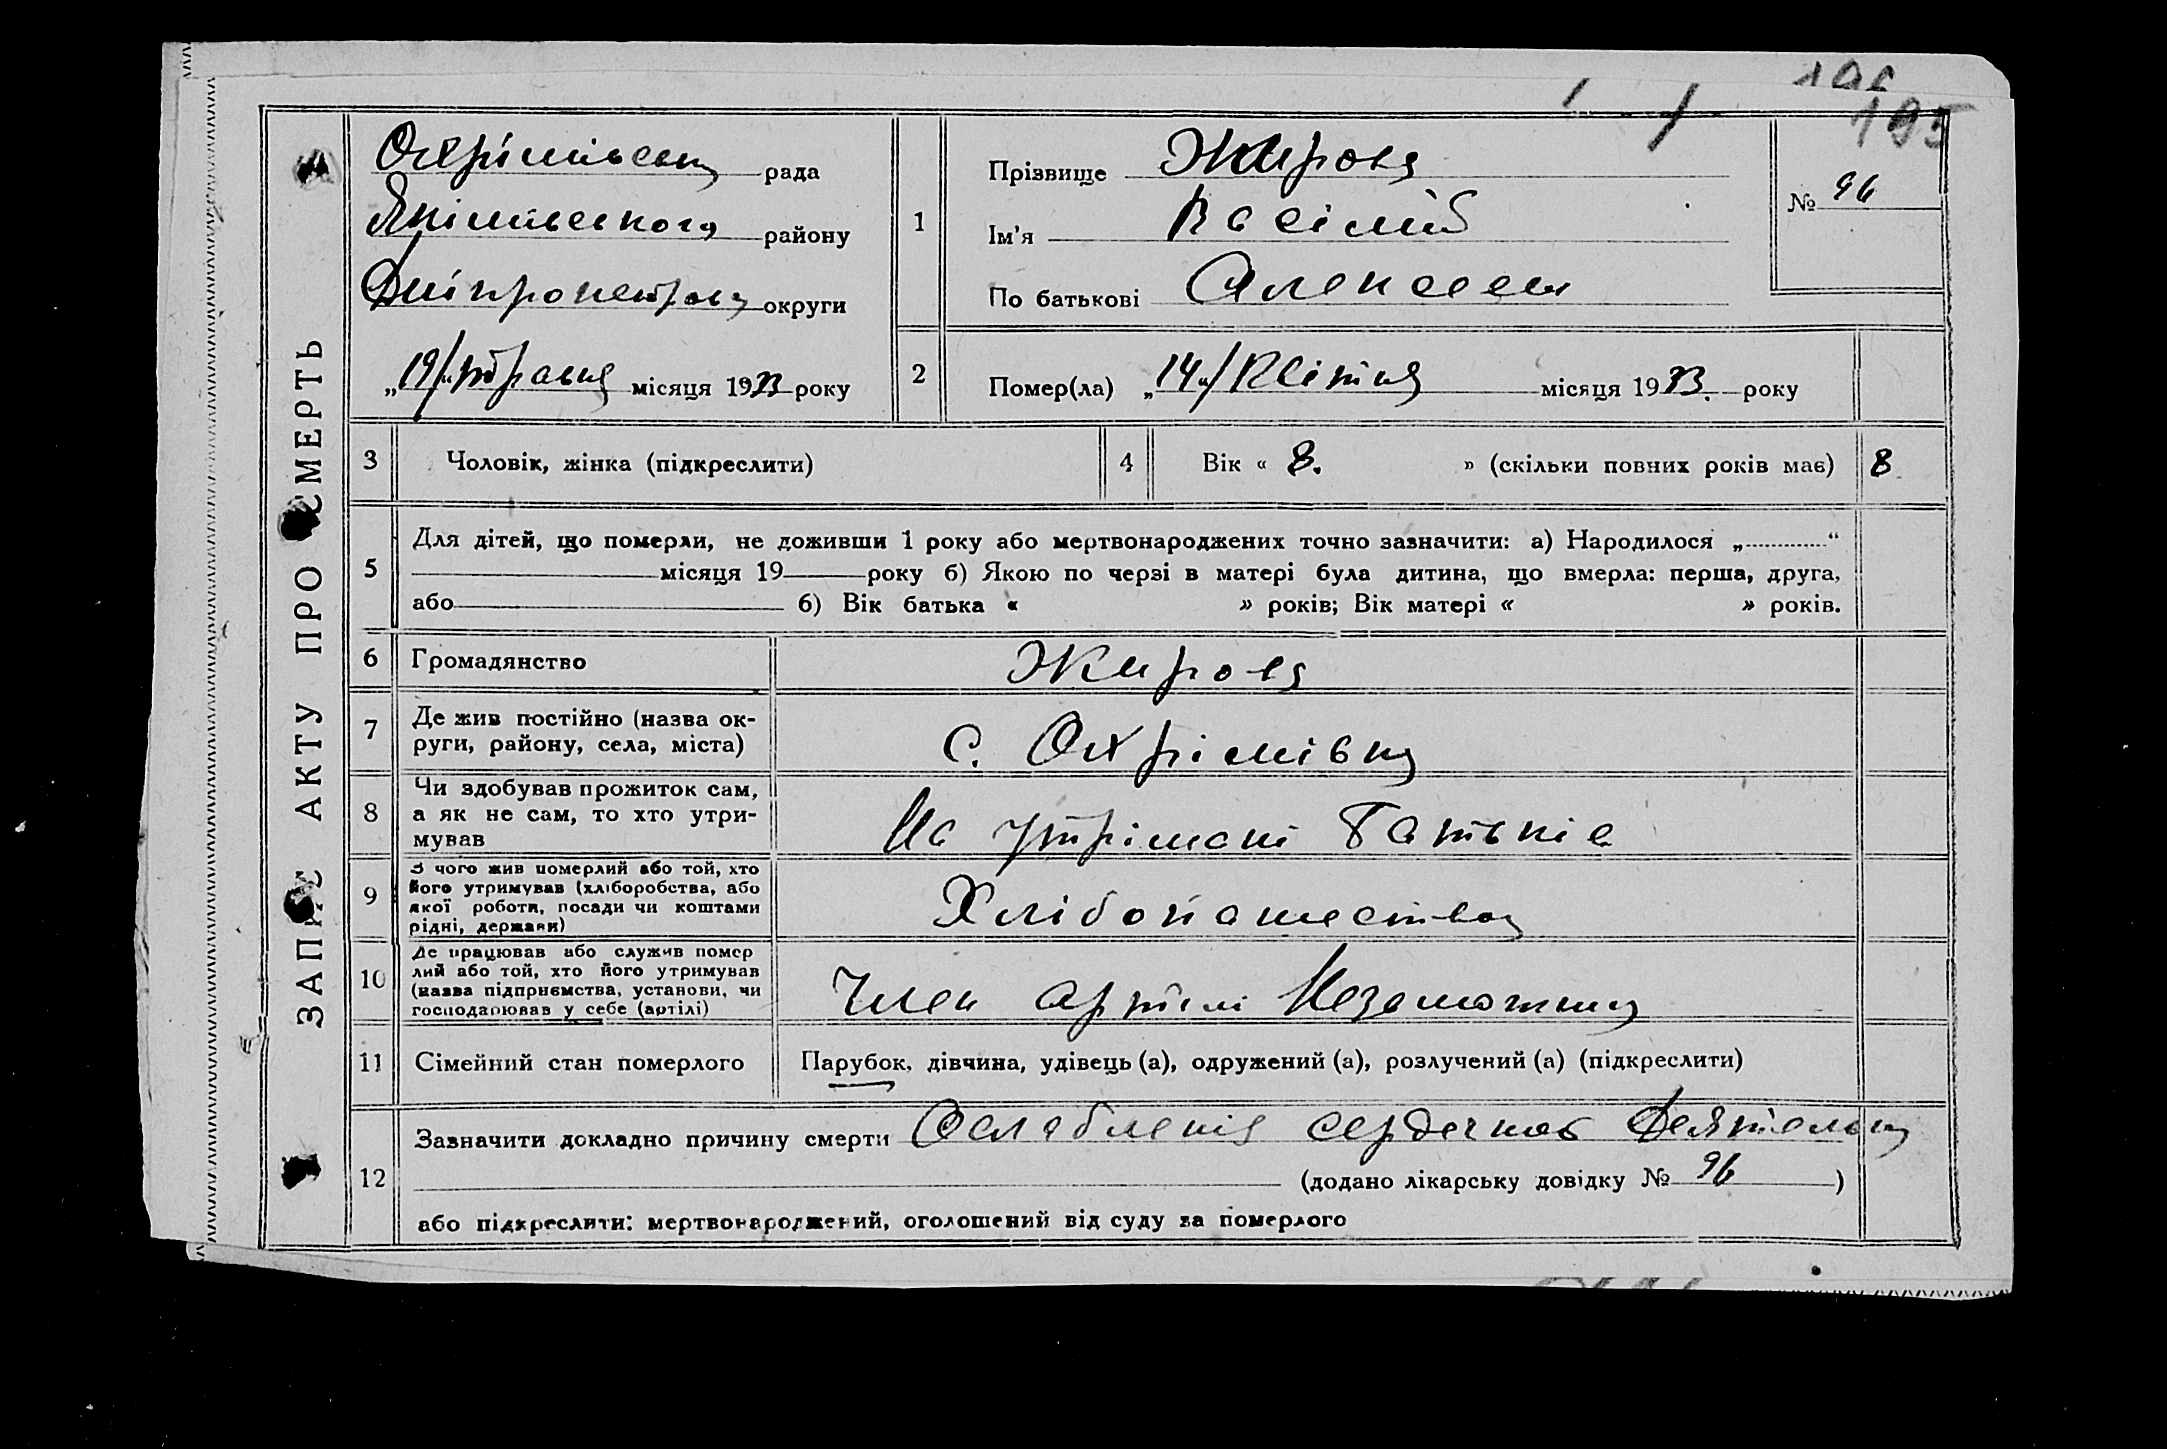 196
195
ЗАПИС АКТУ ПРО СМЕРТЬ
Охрімівськ рада
Якимівського району
Дніпропетровськ округи
„19/" травня місяця 1933 року
1
Прізвище Жирова
Ім'я Васілий
По батькові Алексеев
№ 96
2
Помер(ла) „14"/Квітня місяця 1933. року
3 Чоловік, жінка (підкреслити)
4 Вік « 8. » (скільки повних років має) 8
5
Для дітей, що померли, не доживши 1 року або мертвонароджених точно зазначити: а) Народилося „ “
місяця 19 року б) Якою по черзі в матері була дитина, що вмерла: перша, друга,
або б) Вік батька « » років; Вік матері « » років.
6 Громадянство Жирова
7
Де жив постійно (назва ок-
руги, району, села, міста)
с. Охрімівка
8
Чи здобував прожиток сам,
а як не сам, то хто утри-
мував
На утрімані Батьків
9
З чого жив померлий або той, хто
його утримував (хліборобства, або
якої роботи, посади чи коштами
рідні, держави)
Хлібопашество
10
Де працював або служив помер
лий або той, хто його утримував
(назва підприємства, установи, чи
господарював у себе (артілі)
Член артілі Незаможник
11 Сімейний стан померлого Парубок, дівчина, удівець (а), одружений (а), розлучений (а) (підкреслити)
12
Зазначити докладно причину смерти Ослабленія сердечной
(додано лікарську довідку № 96 )
або підкреслити: мертвонароджений, оголошений від суду за померлого